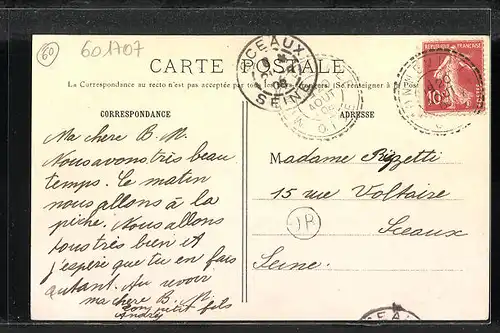 60
601707
CARTE POSTALE
La Correspondance au recto n'est pas acceptée par tous (Se renseigner à la
CORRESPONDANCE
ADRESSE
SCEAUX
SEINE
AOUT
REPUBLIQUE FRANÇAISE
10
Ma chere B. M.
Nous avons très beau
temps. Ce matin
nous allons à la
pêche. Nous allons
tous très bien et
j'espère que tu en fais
autant. Au revoir
ma chere B. M.
ton petit fils
André
Madame Rizetti
15 rue Voltaire
Sceaux
Seine.
JR
SCEAU